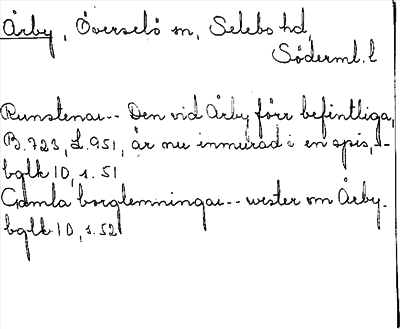 Årby, Överselö sn, Selebo hd,
Söderml. l
Runstenar-- Den vid Årby förr befintliga,
B. 723, L. 951, är nu inmurad i en spis, --
bglk 10, s. 51
Gamla borglemningar-- wester om Årby.
bglk 10, s. 52